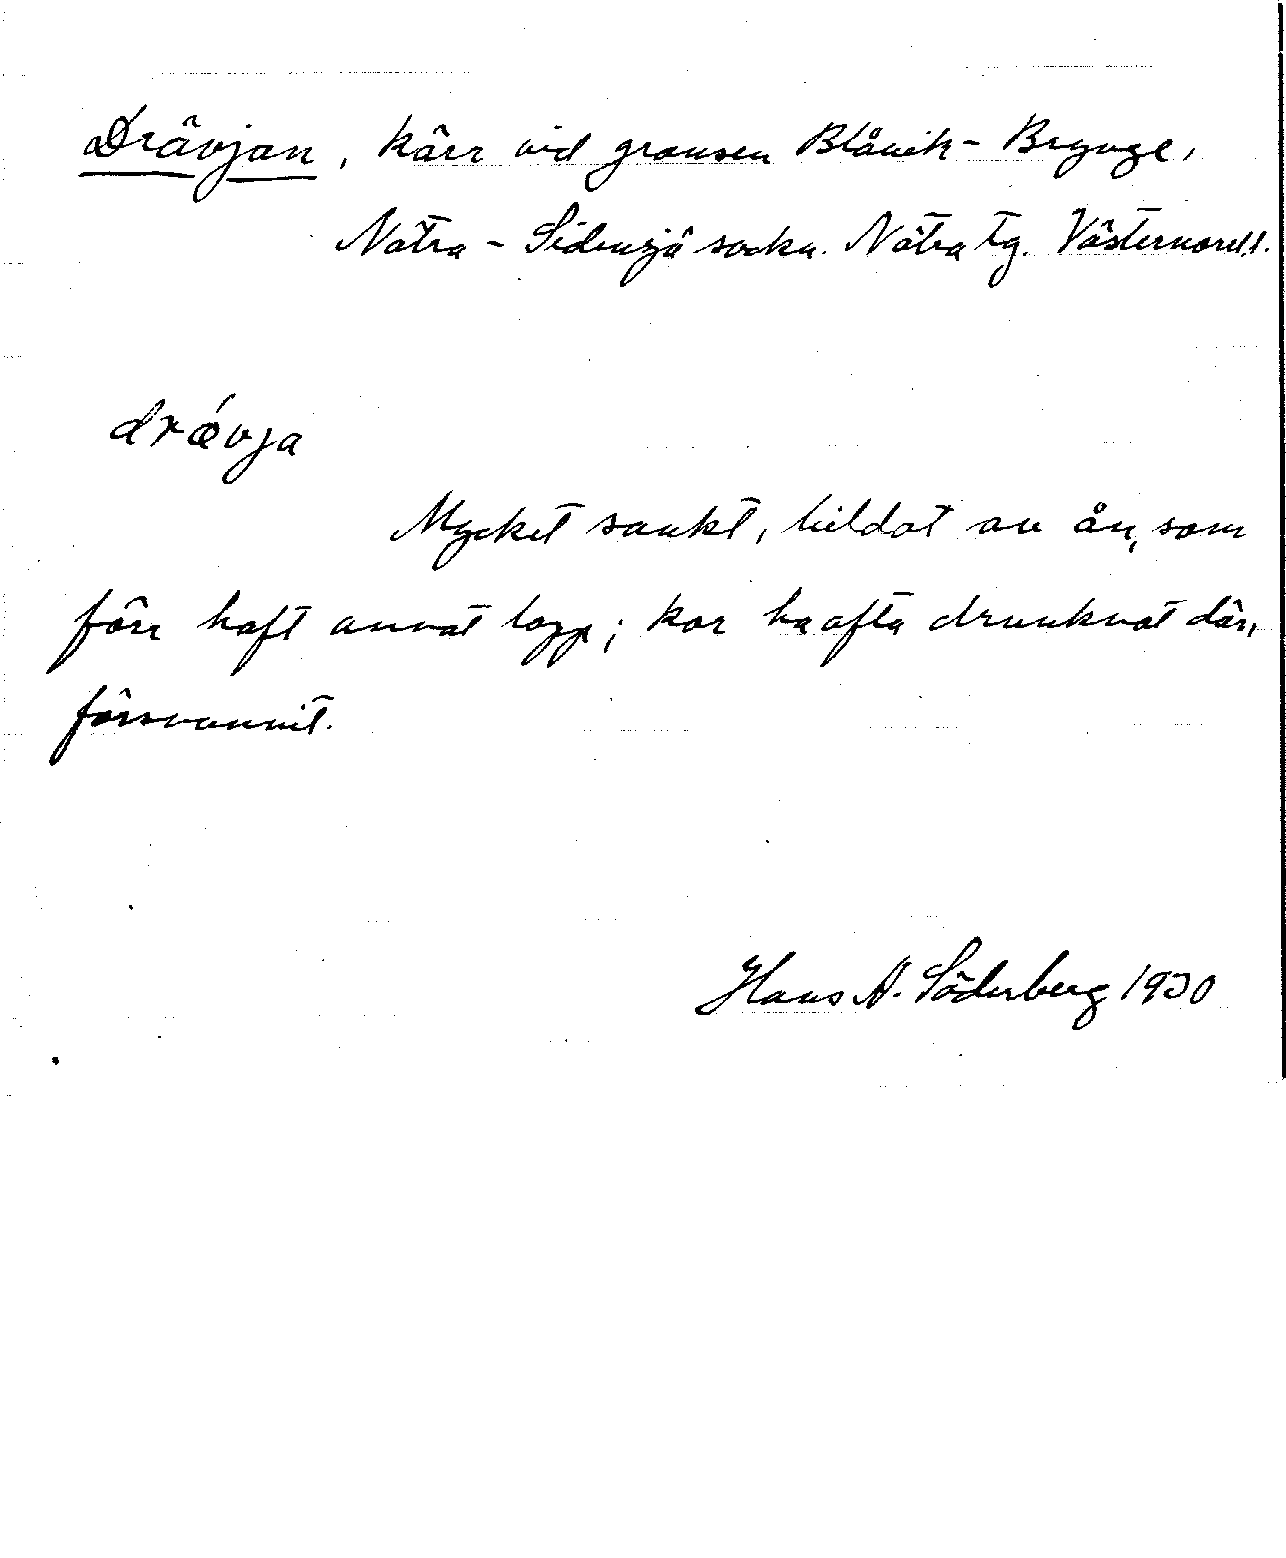 Drävjan, kärr vid gränsen Blåvik - Brynge,
Nätra - Sidensjö sockn. Nätra tg. Västernorrl. l.
drǽvja
Mycket sankt, bildat av ån, som
förr haft annat lopp; kor ha ofta drunknat där,
försvunnit.
Hans A. Söderberg 1930